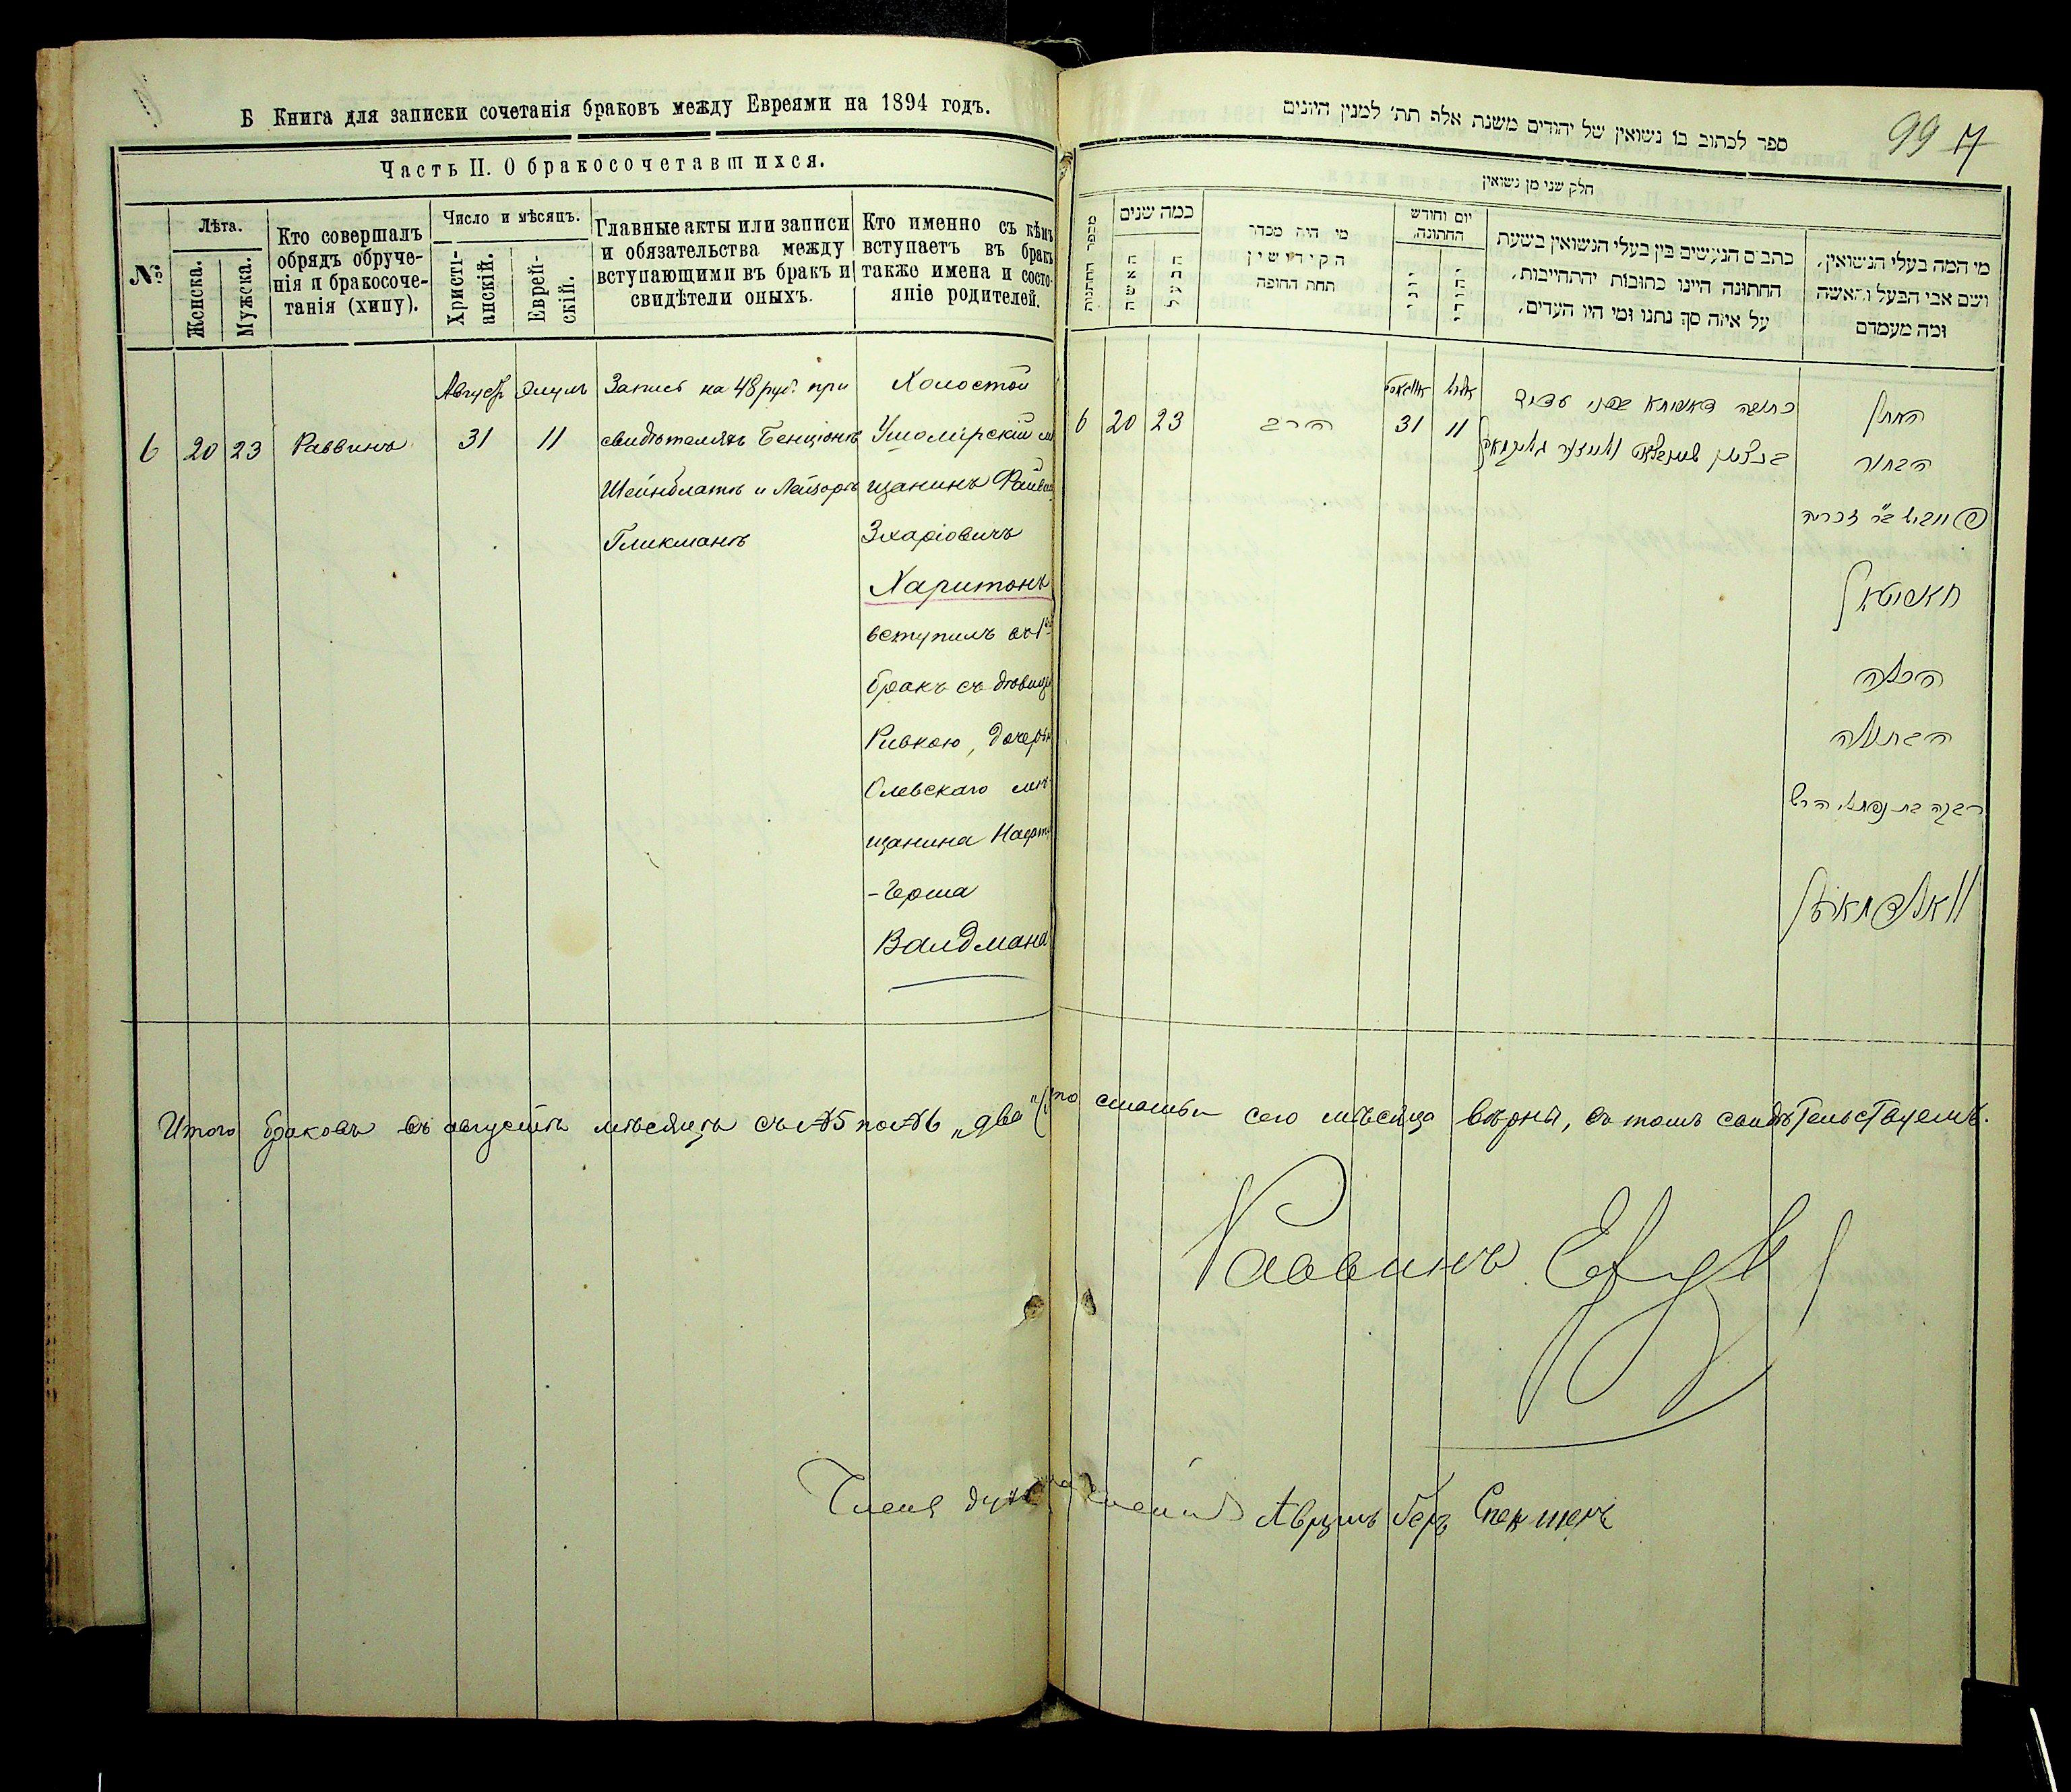 Б Книга для записки сочетанія браковъ между Евреями на 1894 годъ.
Часть II. О бракосочетавшихся.
№
Лѣта.
Женска.
Мужска.
Кто совершалъ
обрядъ обруче-
нія и бракосоче-
танія (хипу).
Число и мѣсяцъ.
Христі-
анскій.
Еврей-
скій.
Главные акты или записи
и обязательства между
вступающими въ бракъ и
свидѣтели оныхъ.
Кто именно съ кѣмъ
вступаетъ въ бракъ
также имена и состо-
яніе родителей.
6
20
23
Раввинъ
Августъ
31
Элулъ
11
Запись на 48 руб. при
свидѣтеляхъ Бенціонъ
Шейнблатъ и Лейзоръ
Гликманъ
Холостой
Ушомирскій мѣ
щанинъ Файвиш
Зхаріовичъ
Харитонъ
вступилъ въ 1й
бракъ съ дѣвицею
Ривкою, дочерью
Олевскаго мѣ-
щанина Нафт
-Герша
Валдмана
ספר לכתוב בו נשואין של יהודים משנת אלף תת׳ למנין היונים
99 7
חלק שני מן נשואין
מספר החתונות
כמה שנים
האשה
הבעל
מי היה מסדר
הקידושין
תחת החופה
יום וחודש
החתונה
כתבים הנעשים בין בעלי הנשואין בשעת
החתונה היינו כתובות יהתחייבות,
על איזה סך נתנו ומי היו העדים,
מי המה בעלי הנשואין,
ושם אבי הבעל והאשה
ומה מעמדם
6
20
23
הרב
אויגוסט
31
אלול
11
החתן
הבחור
פייביש ב״ר זכריה
חאריטאן
הכלה
הבתולה
רבקה בת נפתלי הרש
וואלדמאן
Итого браковъ въ августѣ мѣсяцѣ съ №5 по №6 „два“ что статьи сего мѣсяца вѣрны, въ томъ свидѣтельствуемъ.
Раввинъ
Члены
Аврумъ Беръ